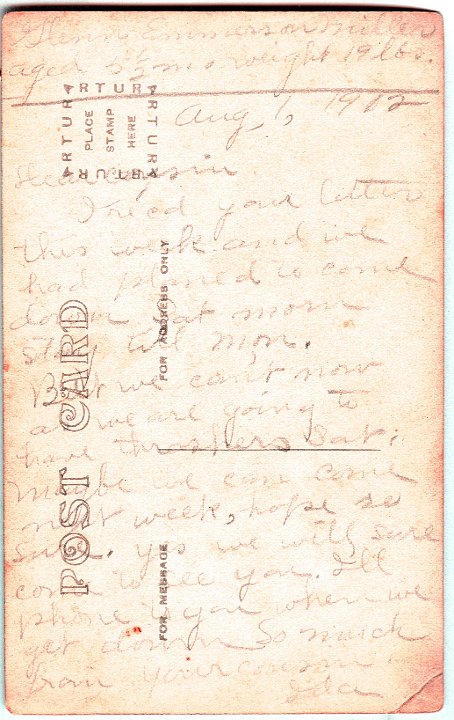 Glenn Emmerson Miller
aged 5½ mo weight 19 lbs.
Aug, 1, 1912
Dear Cousin.
I recd your letter
this week and we
had planed to come
down Sat morn
stay till Mon.
But we can't now
as we are going to
have thrashers Sat;
Maybe we can come
next week, hope so
sure. yes we will sure
come to see you. I'll
phone to you when we
get down So much
from your cousin
Ida
ARTURA
ARTURA
ARTURA
ARTURA
PLACE
STAMP
HERE
POST CARD
FOR ADDRESS ONLY
FOR MESSAGE